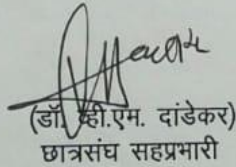 (डॉ. व्ही.एम. दांडेकर)
छात्रसंघ सहप्रभारी